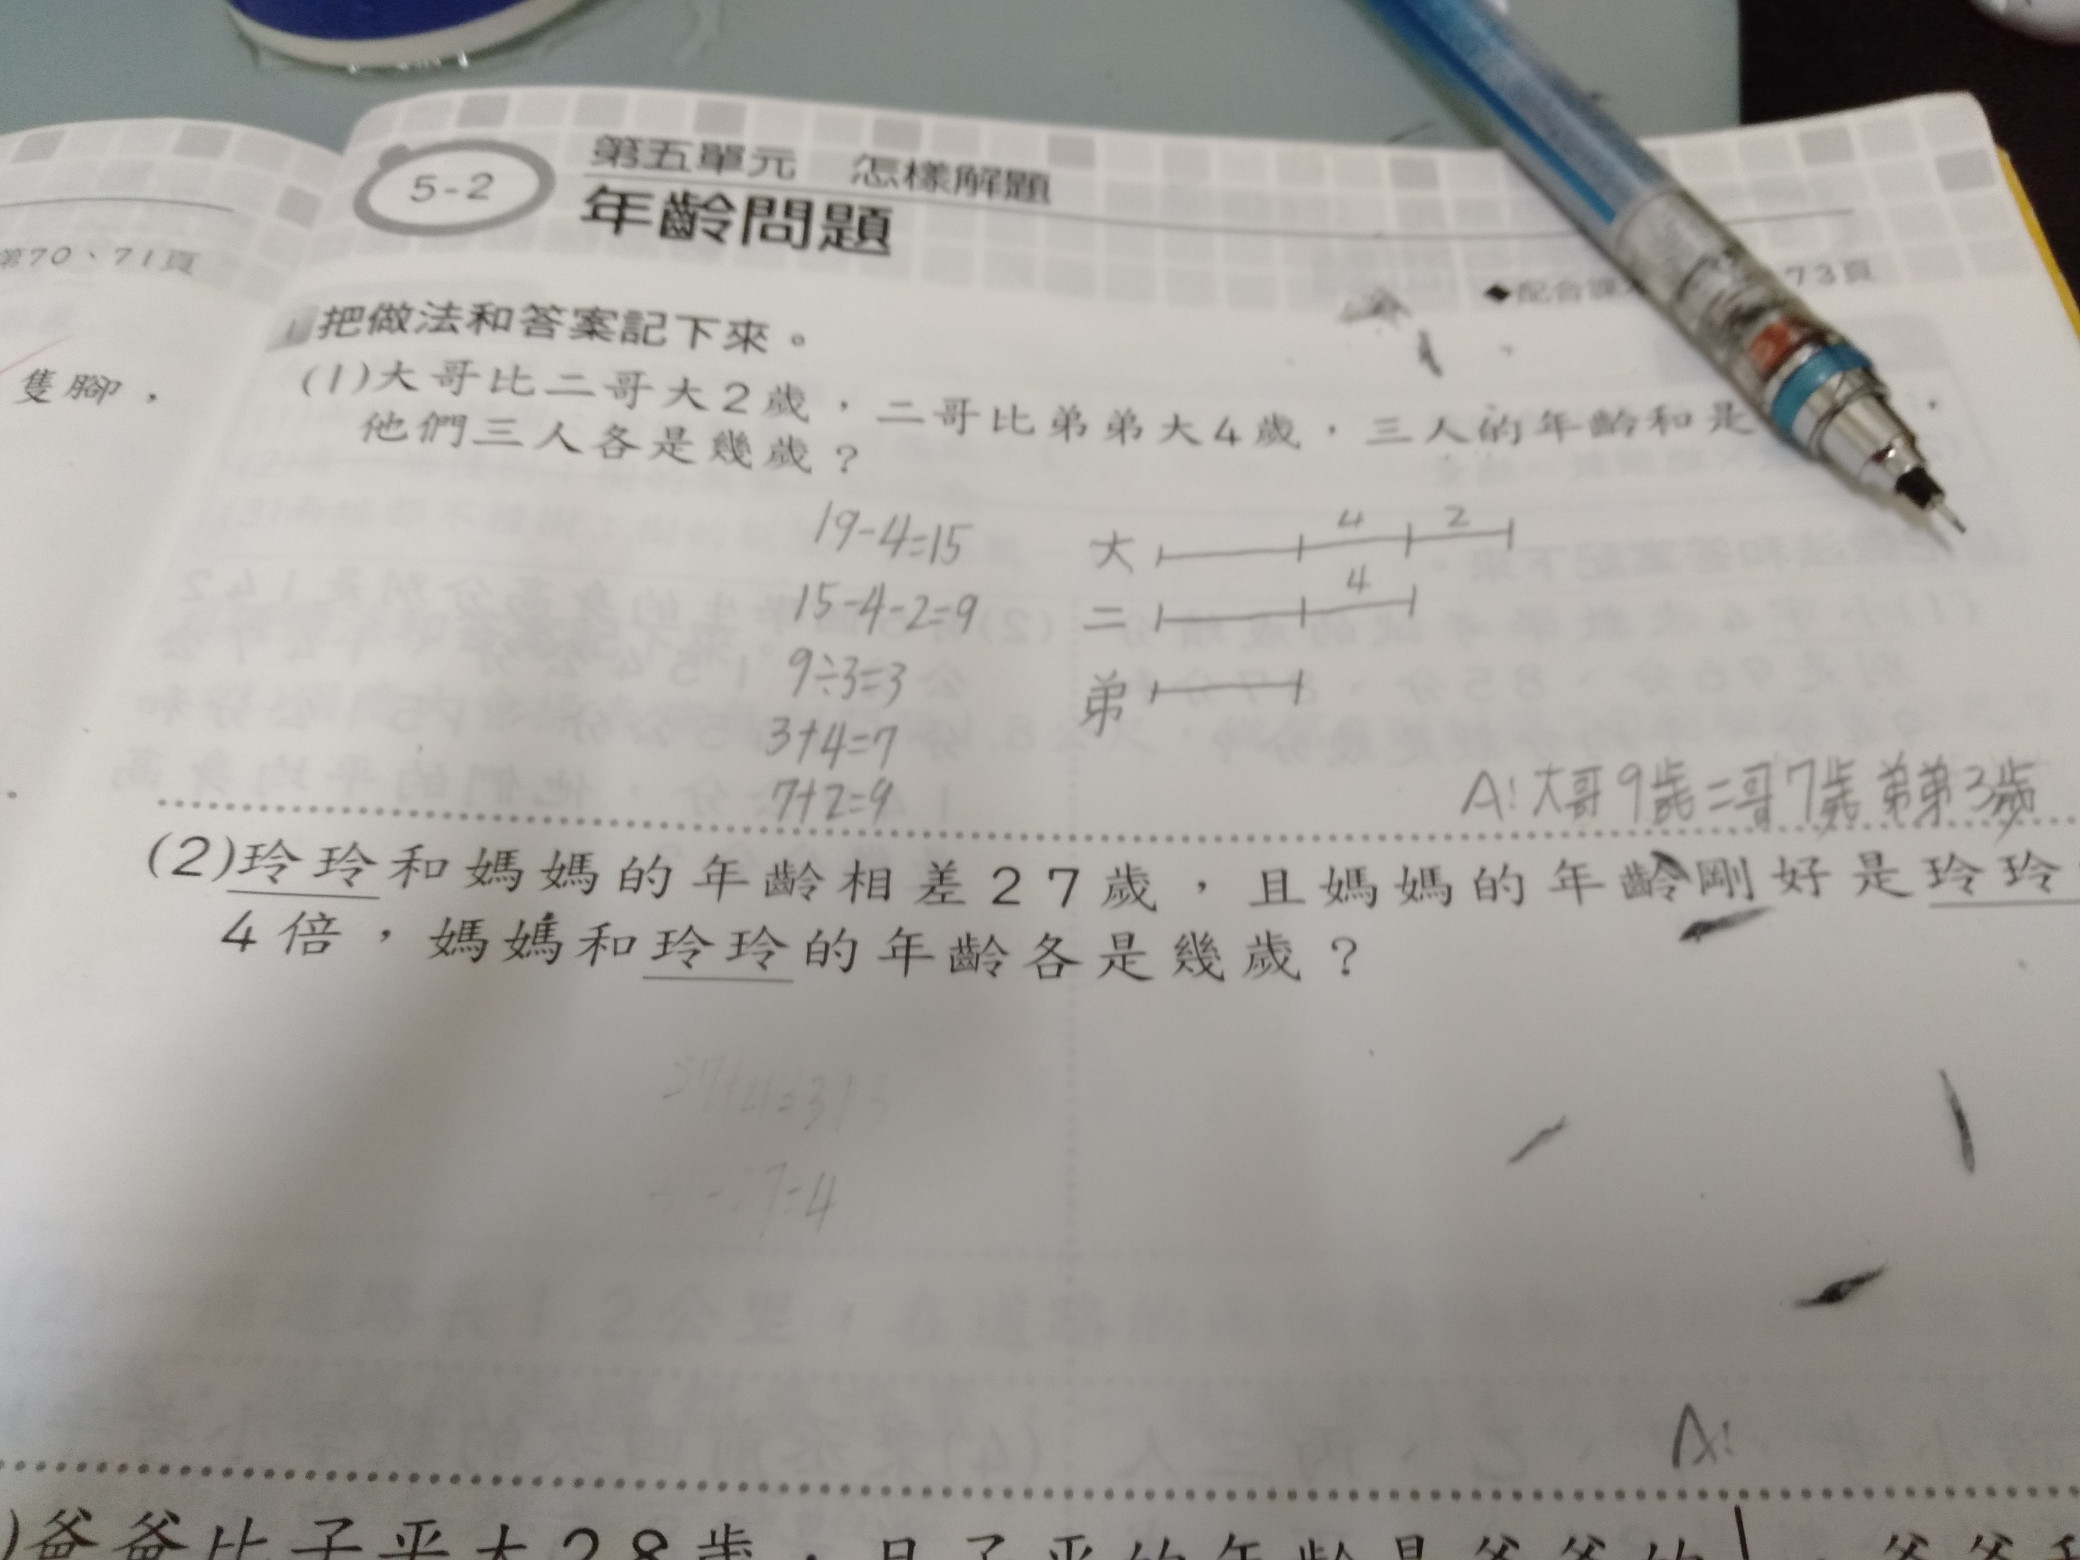 5-2
第五單元 怎樣解題
年齡問題
第70、71頁
◆配合課 73頁
把做法和答案記下來。
隻腳，
(1)大哥比二哥大2歲，二哥比弟弟大4歲，三人的年齡和是
他們三人各是幾歲？
19-4=15
15-4-2=9
9÷3=3
3+4=7
7+2=9
大 4 2
二 4
弟
A:大哥9歲二哥7歲弟弟3歲
(2)玲玲和媽媽的年齡相差27歲，且媽媽的年齡剛好是玲玲
4倍，媽媽和玲玲的年齡各是幾歲？
A:
)爸爸比子平大28歲，且子平的年齡是爸爸的